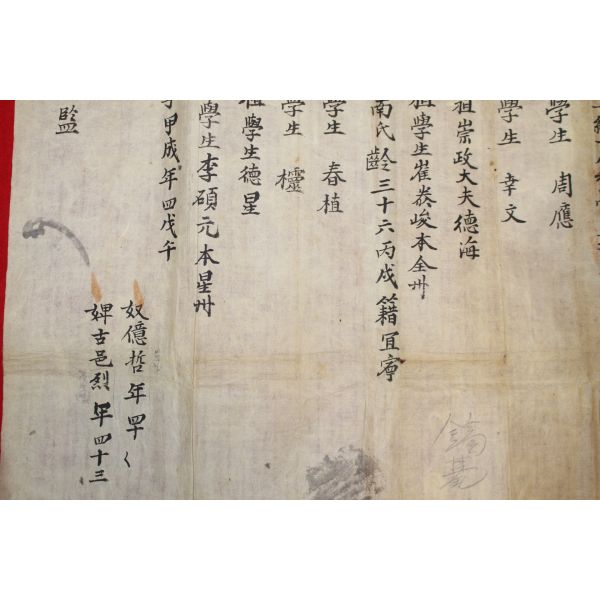 學生 周應
學生 幸文
祖崇政大夫德海
祖學生崔 峻本全州
南氏齡三十六丙戌籍宜寧
學生 春植
學生 櫺
祖學生德星
學生李碩元本星州
甲戌年四戊午
奴億哲年四十
婢古邑烈年四十三
監